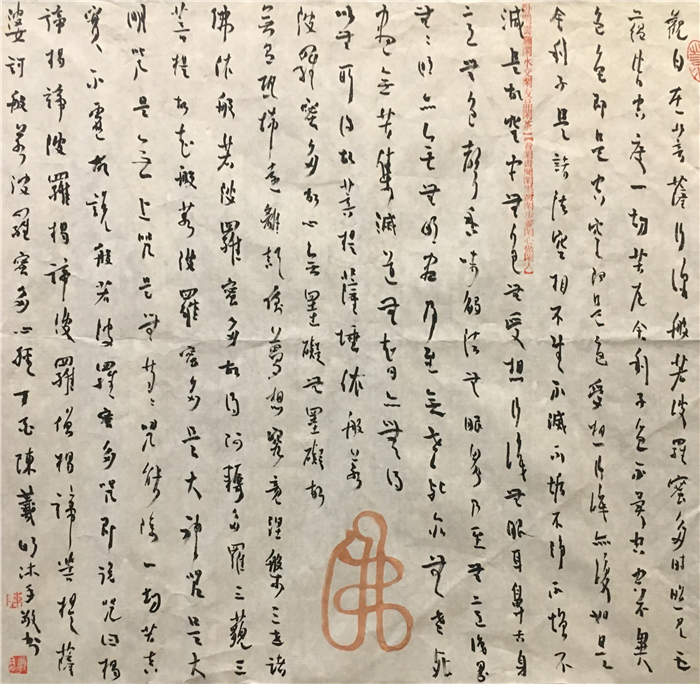 觀自在菩薩行深般若波羅蜜多時照見五
蘊皆空度一切苦厄舍利子色不異空空不異
色色即是空空即是色受想行識亦復如是
舍利子是諸法空相不生不滅不垢不淨不增不
減是故空中無色無受想行識無眼耳鼻舌身
意無色聲香味觸法無眼界乃至無意識界
無無明亦無無明盡乃至無老死亦無老死
盡無苦集滅道無智亦無得
以無所得故菩提薩埵依般若
波羅蜜多故心無罣礙無罣礙故
無有恐怖遠離顛倒夢想究竟涅槃三世諸
佛依般若波羅蜜多故得阿耨多羅三藐三
菩提故知般若波羅蜜多是大神咒是大
明咒是無上咒是無等等咒能除一切苦真
實不虛故說般若波羅蜜多咒即說咒曰揭
諦揭諦波羅揭諦波羅僧揭諦菩提薩
婆訶般若波羅蜜多心經丁酉陳羲明沐手敬書
佛